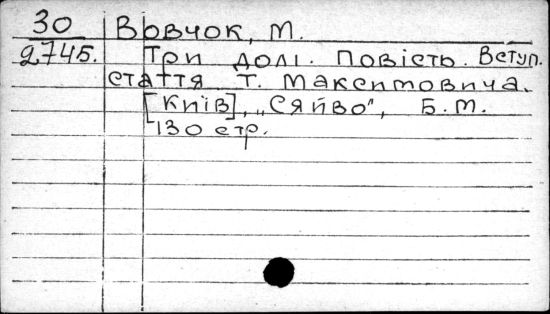 30 Вовчок, М.
2745. Три долі. Повість. Вступ.
стаття Т. Максимовича.
[Київ], „Сяйво", Б.М.
130 стр.